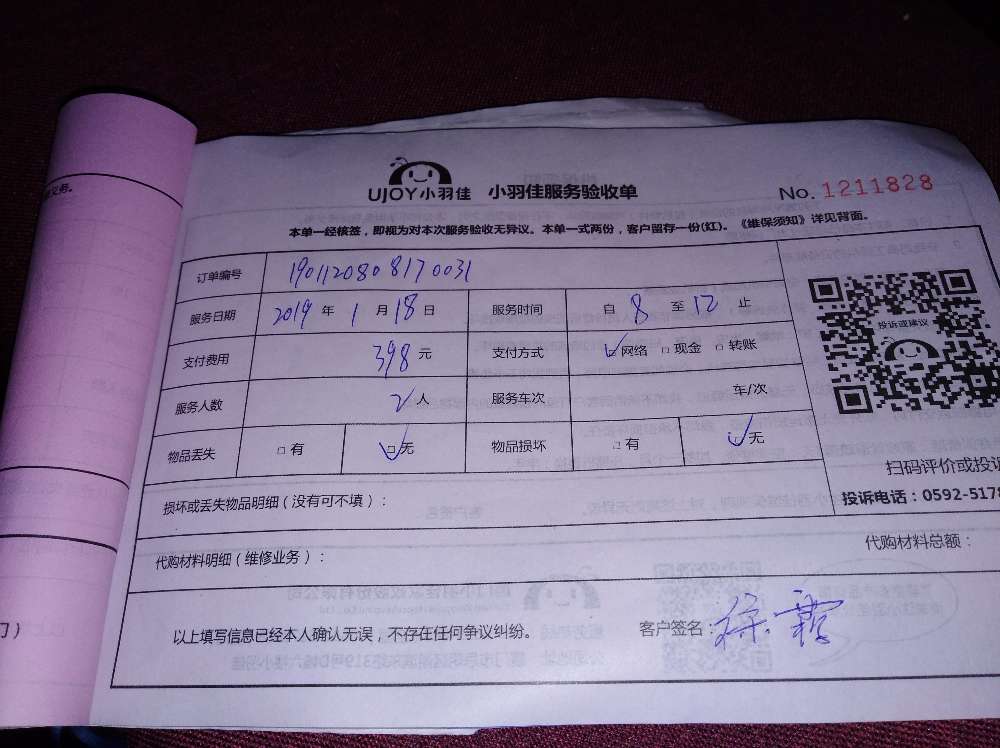 UJOY小羽佳 小羽佳服务验收单
No. 1211828
本单一经核签，即视为对本次服务验收无异议。本单一式两份，客户留存一份(红)。《维保须知》详见背面。
订单编号 1901120808170031
服务日期 2019 年 1 月 18 日 服务时间 自 8 至 12 止
支付费用 398 元 支付方式 ☑网络 □现金 □转账
服务人数 2 人 服务车次 车/次
物品丢失 □有 ☑无 物品损坏 □有 ☑无
投诉或建议
扫码评价或投诉
投诉电话：0592-5178
损坏或丢失物品明细（没有可不填）：
代购材料明细（维修业务）： 代购材料总额：
以上填写信息已经本人确认无误，不存在任何争议纠纷。 客户签名：